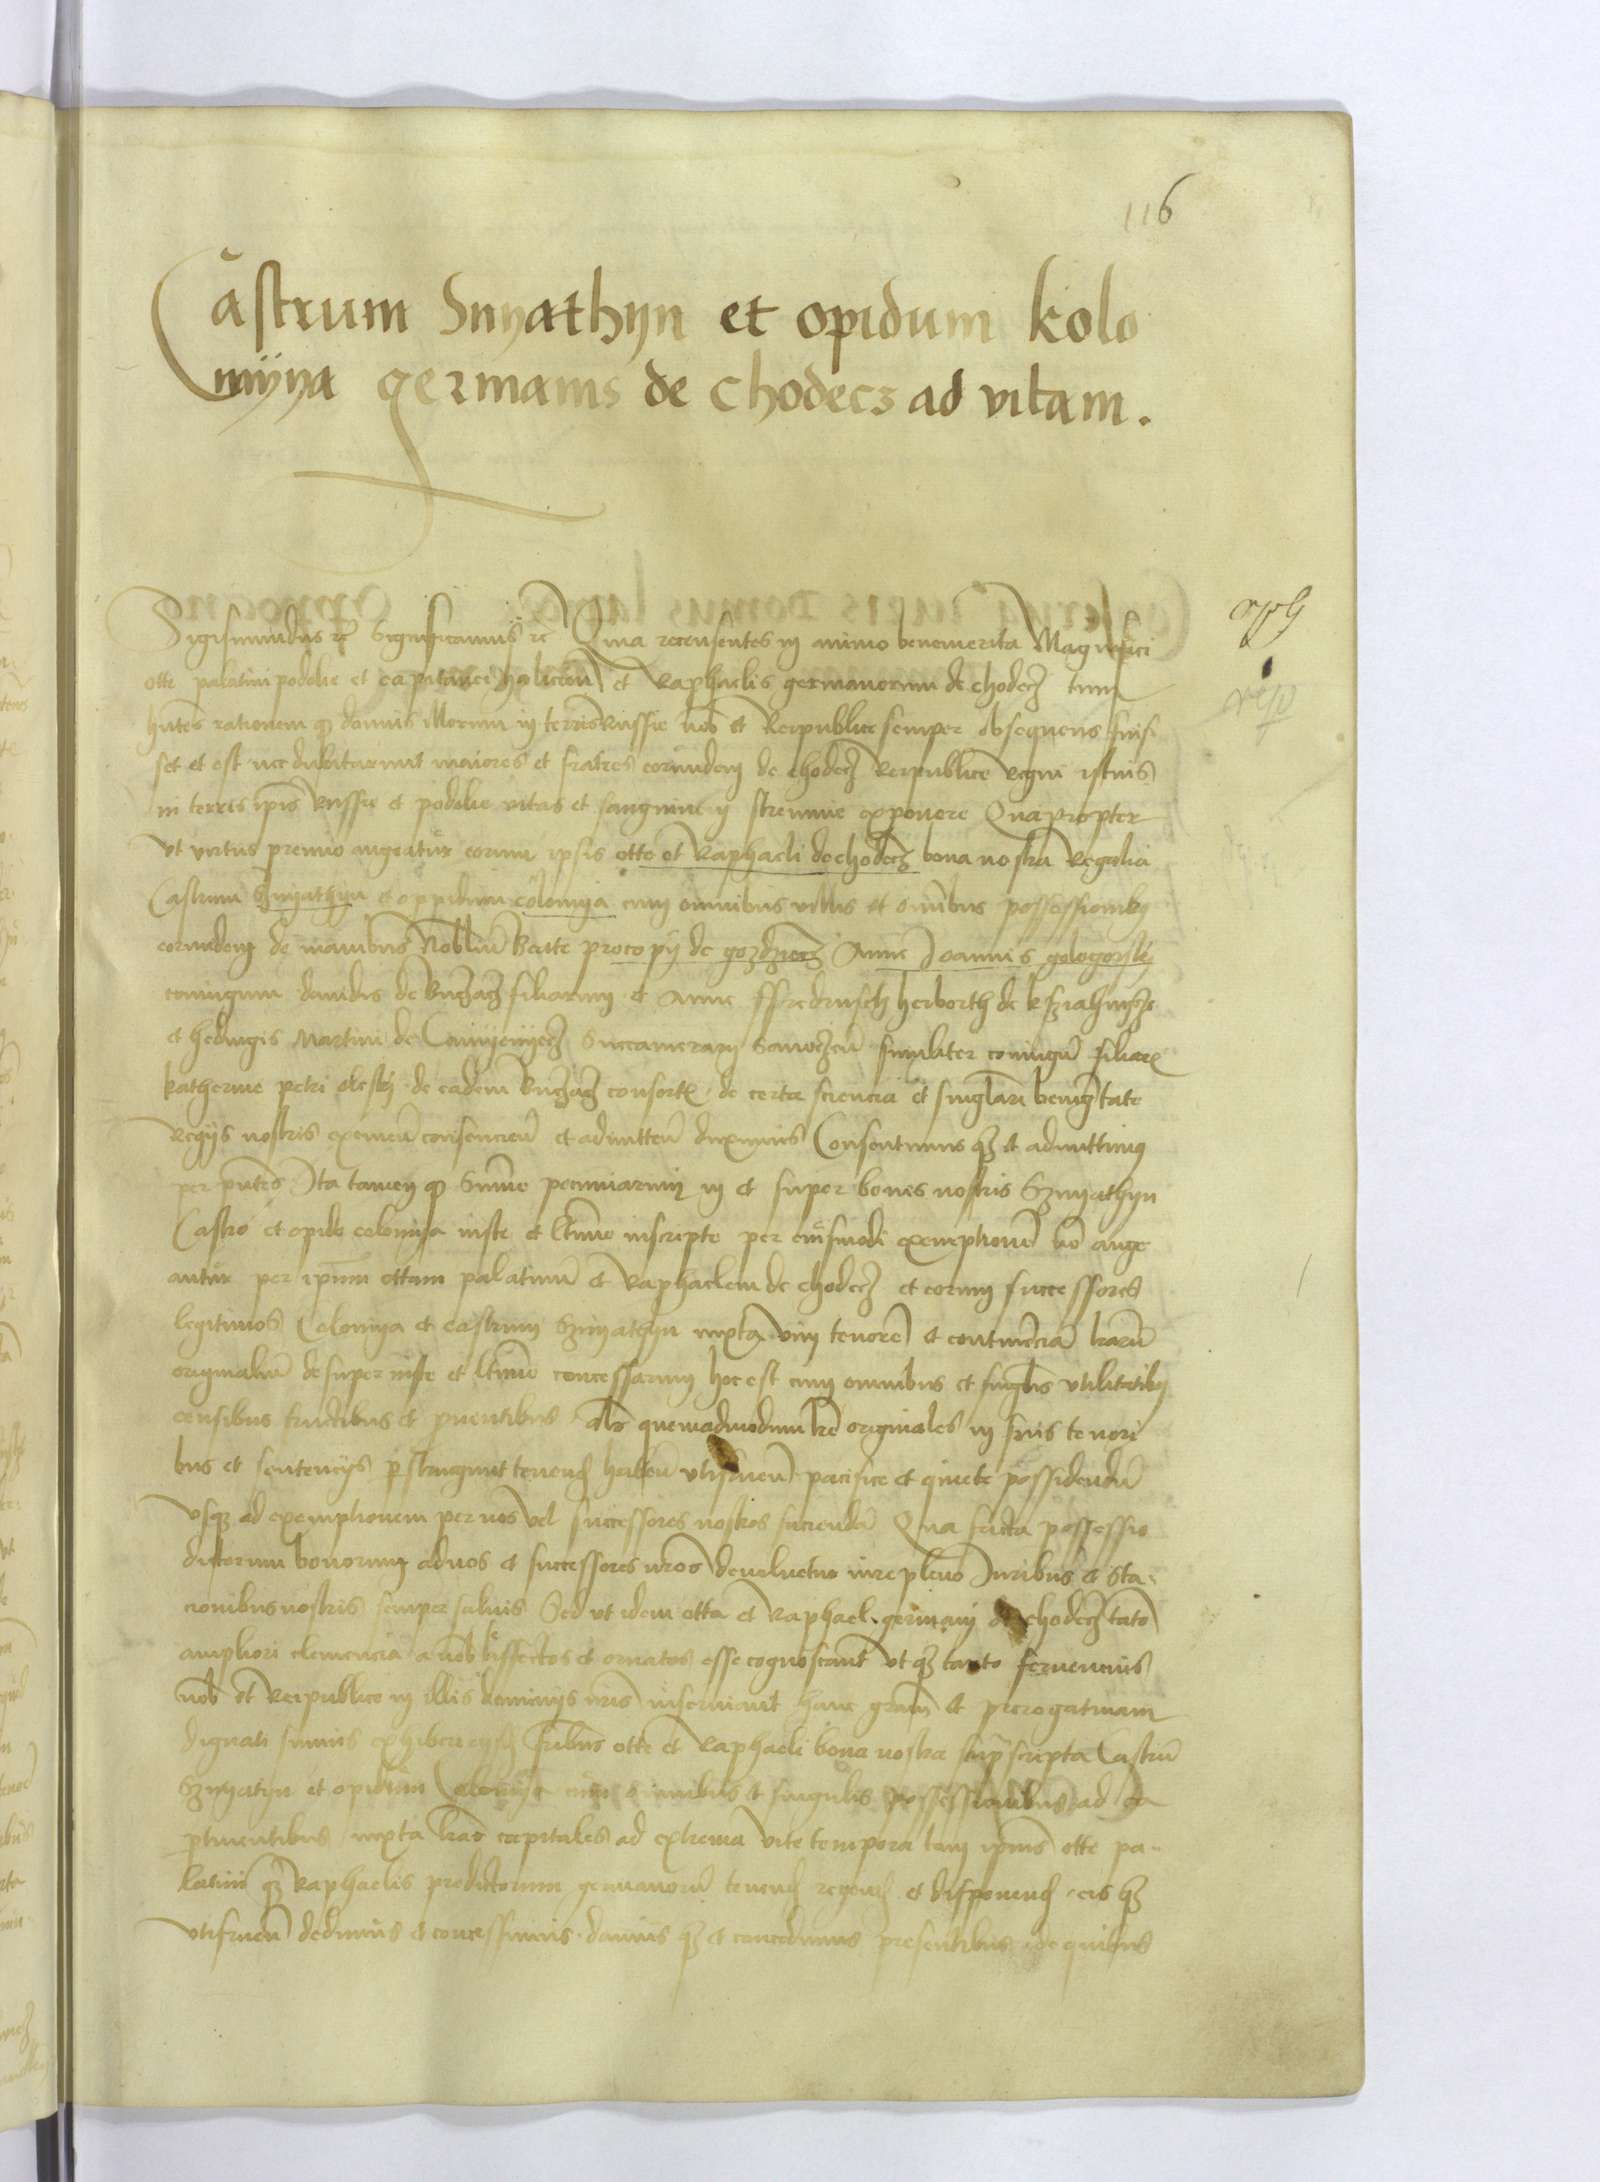 116
Castrum Snyathyn et opidum kolo
myya germanis de Chodecz ad vitam.
Sigismundus etc Significamus etc Quia recensentes in animo benemerita Magnifici
otte palatini podolie et capitanei halicien et Raphaelis germanorum de chodecz tum
hntes rationem q domus illorum in terris Russie nob et Reipublice semper obsequens fuis
set et est nec dubitarunt maiores et fratres eorundem de chodecz Reipublice regni istius
in terris ipis Russie et podolie vitas et sanguinem strennue exponere Quapropter
vt virtus premio augeatur eorum ipsis otte et Raphaeli de chodecz bona nostra Regalia
Castrum Sznyathyn et oppidum colomya cum omnibus villis et omibus possessionibus
eorundem de manibus Nobilium Beate procopij de gozdziecz Anne Joannis gologorskj
coniugum dauidis de Buczacz filiarum et Anne ffredrusch herborth de
et Hedwigis Martini de Camyenyecz Succamerarij Sanocen similiter coniugu filiar
katherine petri oleskj de eadem Buczacz consort de certa sciencia et singlari benigtate
regijs nostris eximen consencien et admitten duximus Consentimus qz et admittimus
per pntes Ita tamen q Summe pecuniarum in et super bonis nostris Sznyathyn
Castro et opido colomya iuste et ltime inscripte per eiusmodi exemptionem no auge
antur per ipum ottam palatinu et Raphaelem de chodecz et eorum successores
legitimos Colomya et castrum Sznyathyn iuxta vim tenore et continencia lrarum
originaliu desuper iuste et ltime concessarum hoc est cum omnibus et singlis vtilitatibus
censibus fructibus et puentibus alys quemadmodum lre originales in suis tenori
bus et sentencijs pstringunt tenend haben vtifruen pacifice et quiete possidendu
vsqz ad exemptionem per nos vel successores nostros facienda Qua facta possessio
dictorum bonorum ad nos et successores nros deuoluetur iure pleno Juribus et sta-
cionibus nostris semper saluis Sed vt idem otta et Raphael germani de chodecz tato
ampliori clemencia a nob affectos et ornatos esse cognoscant vt qz tanto feruencius
nob et Reipublice in illis dominijs nris inseruiant hanc gram et prerogatiuam
dignati sumus exhibere eysd fribus otte et Raphaeli bona nostra suprascripta Castru
Sznyatyn et opidum Colomya cum omnibus et singulis possessionibus ad ea
ptinentibus iuxta lras capitales ad extrema vite tempora tam ipius otte pa-
latini qz Raphaelis predictorum germanoru tenend regend et disponend eis qz
vtifruen dedimus et concessimus damus qz et concedimus presentibus de quibus